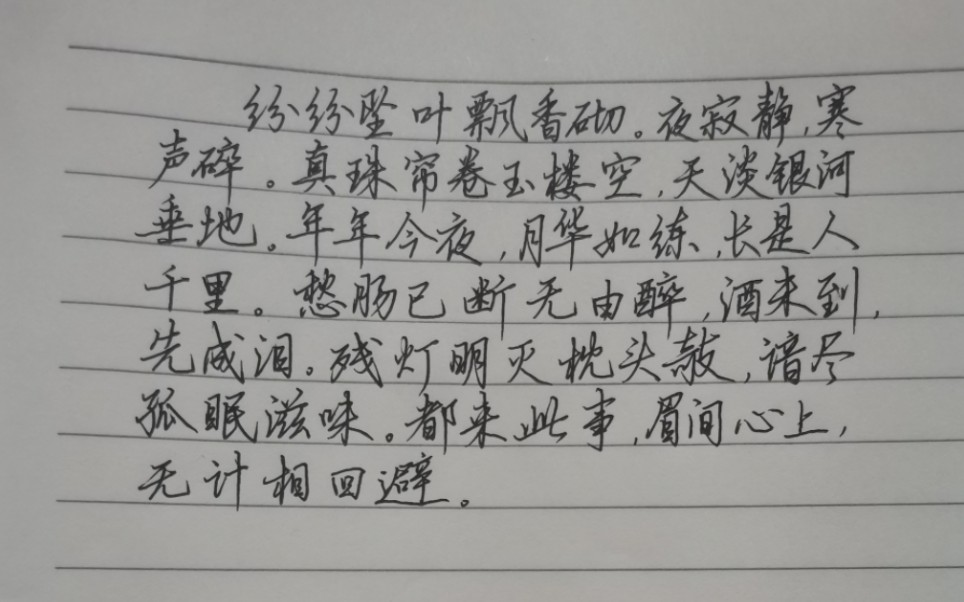 纷纷坠叶飘香砌。夜寂静,寒
声碎。真珠帘卷玉楼空,天淡银河
垂地。年年今夜,月华如练,长是人
千里。愁肠已断无由醉,酒未到,
先成泪。残灯明灭枕头敧,谙尽
孤眠滋味。都来此事,眉间心上,
无计相回避。